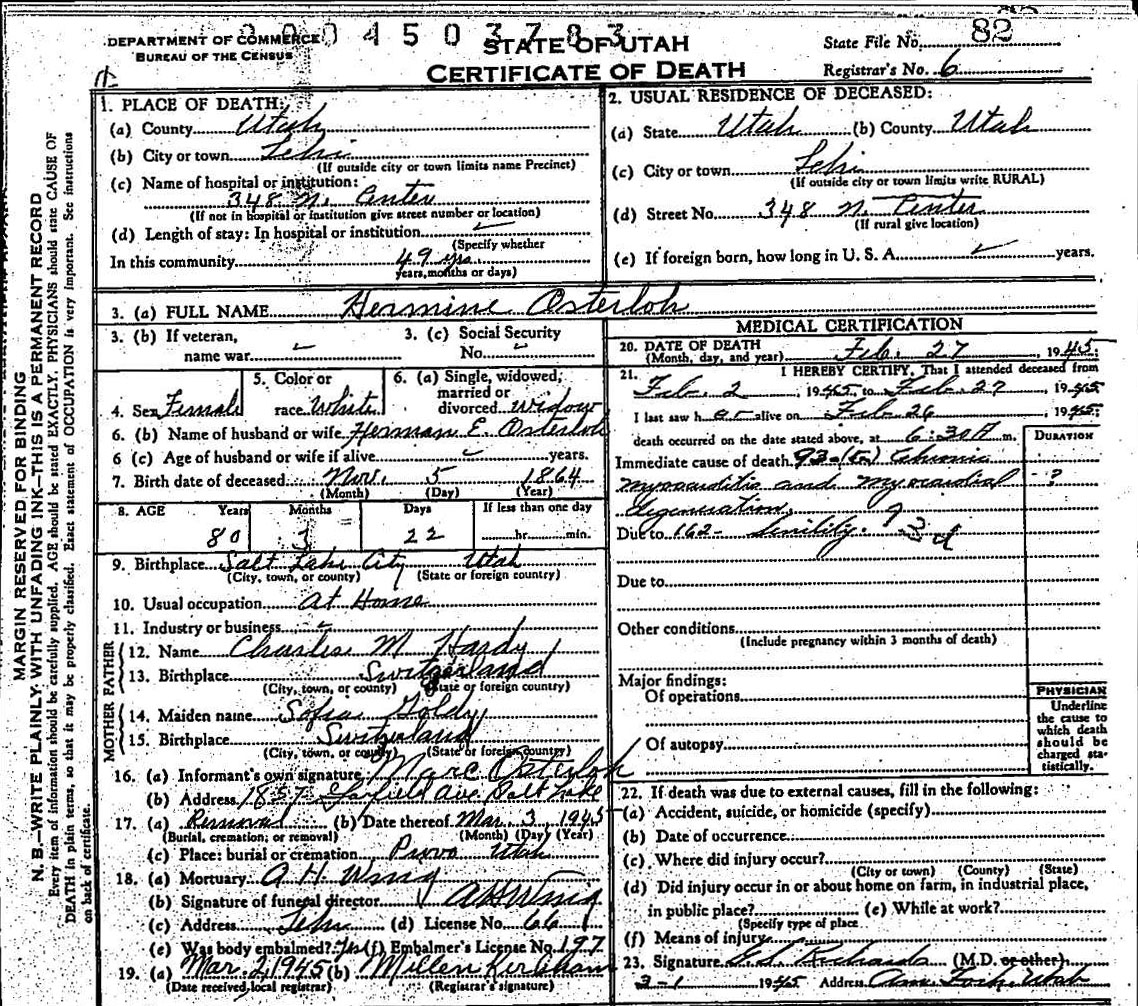 0 0 0 4 5 0 3 7 8 3
DEPARTMENT OF COMMERCE
BUREAU OF THE CENSUS
STATE OF UTAH
CERTIFICATE OF DEATH
State File No. 82
Registrar's No. 6
MARGIN RESERVED FOR BINDING
N. B.—WRITE PLAINLY, WITH UNFADING INK—THIS IS A PERMANENT RECORD
Every item of information should be carefully supplied. AGE should be stated EXACTLY. PHYSICIANS should state CAUSE OF
DEATH in plain terms, so that it may be properly classified. Exact statement of OCCUPATION is very important. See instructions
on back of certificate.
1. PLACE OF DEATH:
(a) County Utah
(b) City or town Lehi
(If outside city or town limits name Precinct)
(c) Name of hospital or institution:
348 N. Center
(If not in hospital or institution give street number or location)
(d) Length of stay: In hospital or institution
(Specify whether
In this community 49 yrs.
years, months or days)
2. USUAL RESIDENCE OF DECEASED:
(a) State Utah (b) County Utah
(c) City or town Lehi
(If outside city or town limits write RURAL)
(d) Street No. 348 N. Center
(If rural give location)
(e) If foreign born, how long in U. S. A. years.
3. (a) FULL NAME Hermine Osterloh
3. (b) If veteran, name war
3. (c) Social Security No.
4. Sex Female
5. Color or race White
6. (a) Single, widowed, married or divorced Widow
6. (b) Name of husband or wife Herman E. Osterloh
6 (c) Age of husband or wife if alive years.
7. Birth date of deceased Nov. 5 1864
(Month) (Day) (Year)
8. AGE Years Months Days If less than one day
80 3 22 hr. min.
9. Birthplace Salt Lake City Utah
(City, town, or county) (State or foreign country)
10. Usual occupation At Home
11. Industry or business
FATHER
12. Name Charles M Hardy
13. Birthplace Switzerland
(City, town, or county) (State or foreign country)
MOTHER
14. Maiden name Sofia Goldy
15. Birthplace Switzerland
(City, town, or county) (State or foreign country)
16. (a) Informant's own signature Marc Osterloh
(b) Address 1857 Garfield Ave Salt Lake
17. (a) Removal (b) Date thereof Mar. 3 1945
(Burial, cremation, or removal) (Month) (Day) (Year)
(c) Place: burial or cremation Provo Utah
18. (a) Mortuary A H Wing
(b) Signature of funeral director A H Wing
(c) Address Lehi (d) License No. 66
(e) Was body embalmed? Yes (f) Embalmer's License No. 197
19. (a) Mar. 2, 1945 (b) Millen Kirkham
(Date received local registrar) (Registrar's signature)
MEDICAL CERTIFICATION
20. DATE OF DEATH
(Month, day, and year) Feb. 27, 1945;
21. I HEREBY CERTIFY, That I attended deceased from
Feb. 2, 1945 to Feb. 27, 1945
I last saw her alive on Feb 26, 1945;
death occurred on the date stated above, at 6:30 A m.
DURATION
Immediate cause of death 93-(c) Chronic
myocarditis and myocardial - ?
degeneration.
Due to 162- Senility. 93d
Due to
Other conditions
(Include pregnancy within 3 months of death)
Major findings:
Of operations
Of autopsy
PHYSICIAN
Underline
the cause to
which death
should be
charged sta-
tistically.
22. If death was due to external causes, fill in the following:
(a) Accident, suicide, or homicide (specify)
(b) Date of occurrence
(c) Where did injury occur?
(City or town) (County) (State)
(d) Did injury occur in or about home on farm, in industrial place,
in public place? (e) While at work?
(Specify type of place
(f) Means of injury
23. Signature Richards (M.D. or other)
3-1 1945 Address Am. Fork, Utah